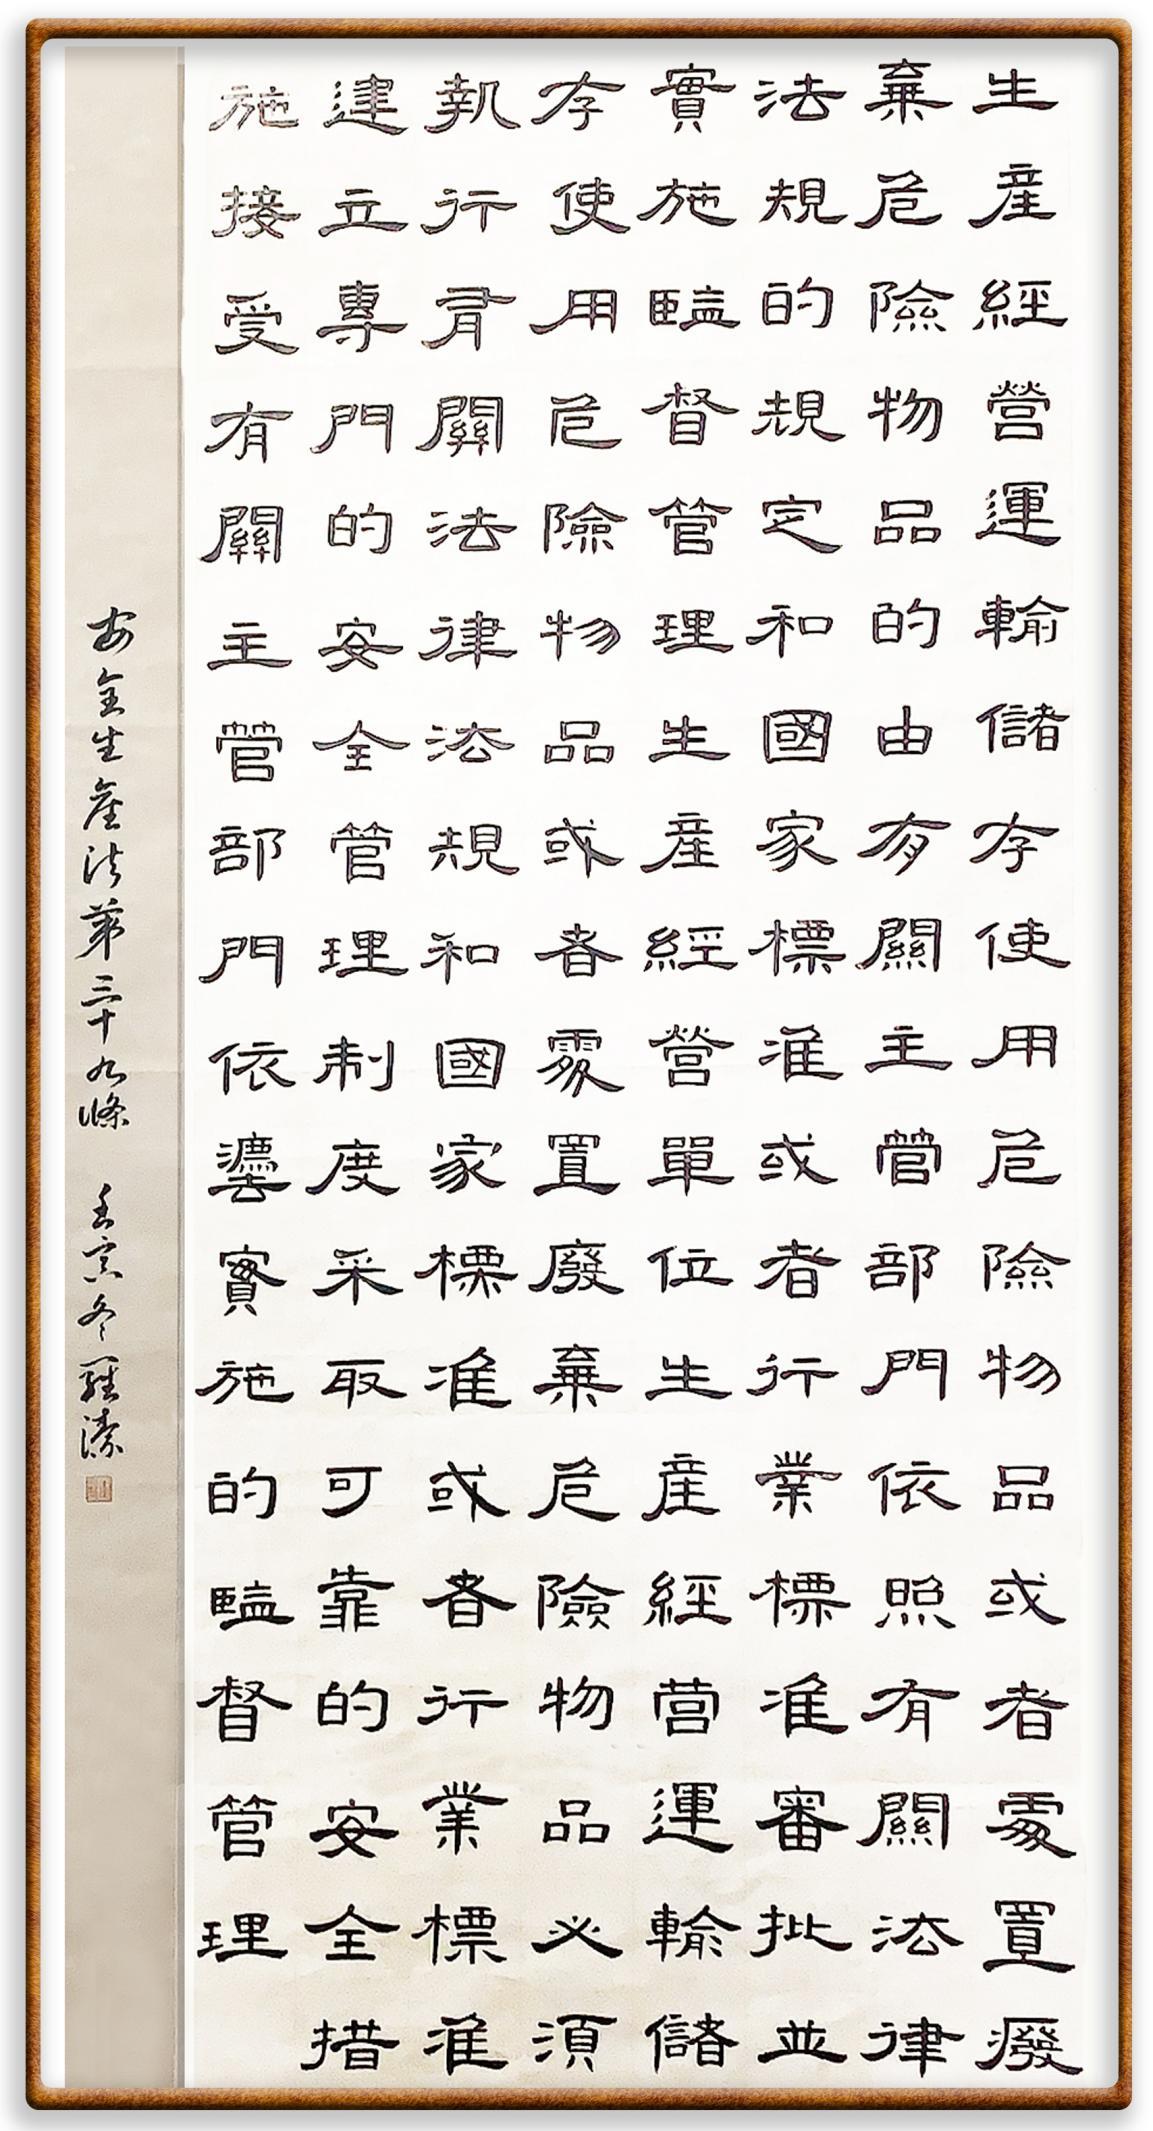 生産經營運輸儲存使用危險物品或者處置廢
棄危險物品的由有關主管部門依照有關法律
法規的規定和國家標准或者行業標准審批並
實施監督管理生産經營單位生産經营運輸儲
存使用危險物品或者處置廢棄危險物品必須
執行有關法律法規和國家標准或者行業標准
建立專門的安全管理制度采取可靠的安全措
施接受有關主管部門依灋實施的監督管理
安全生産法第三十九條 壬寅冬 羅濤